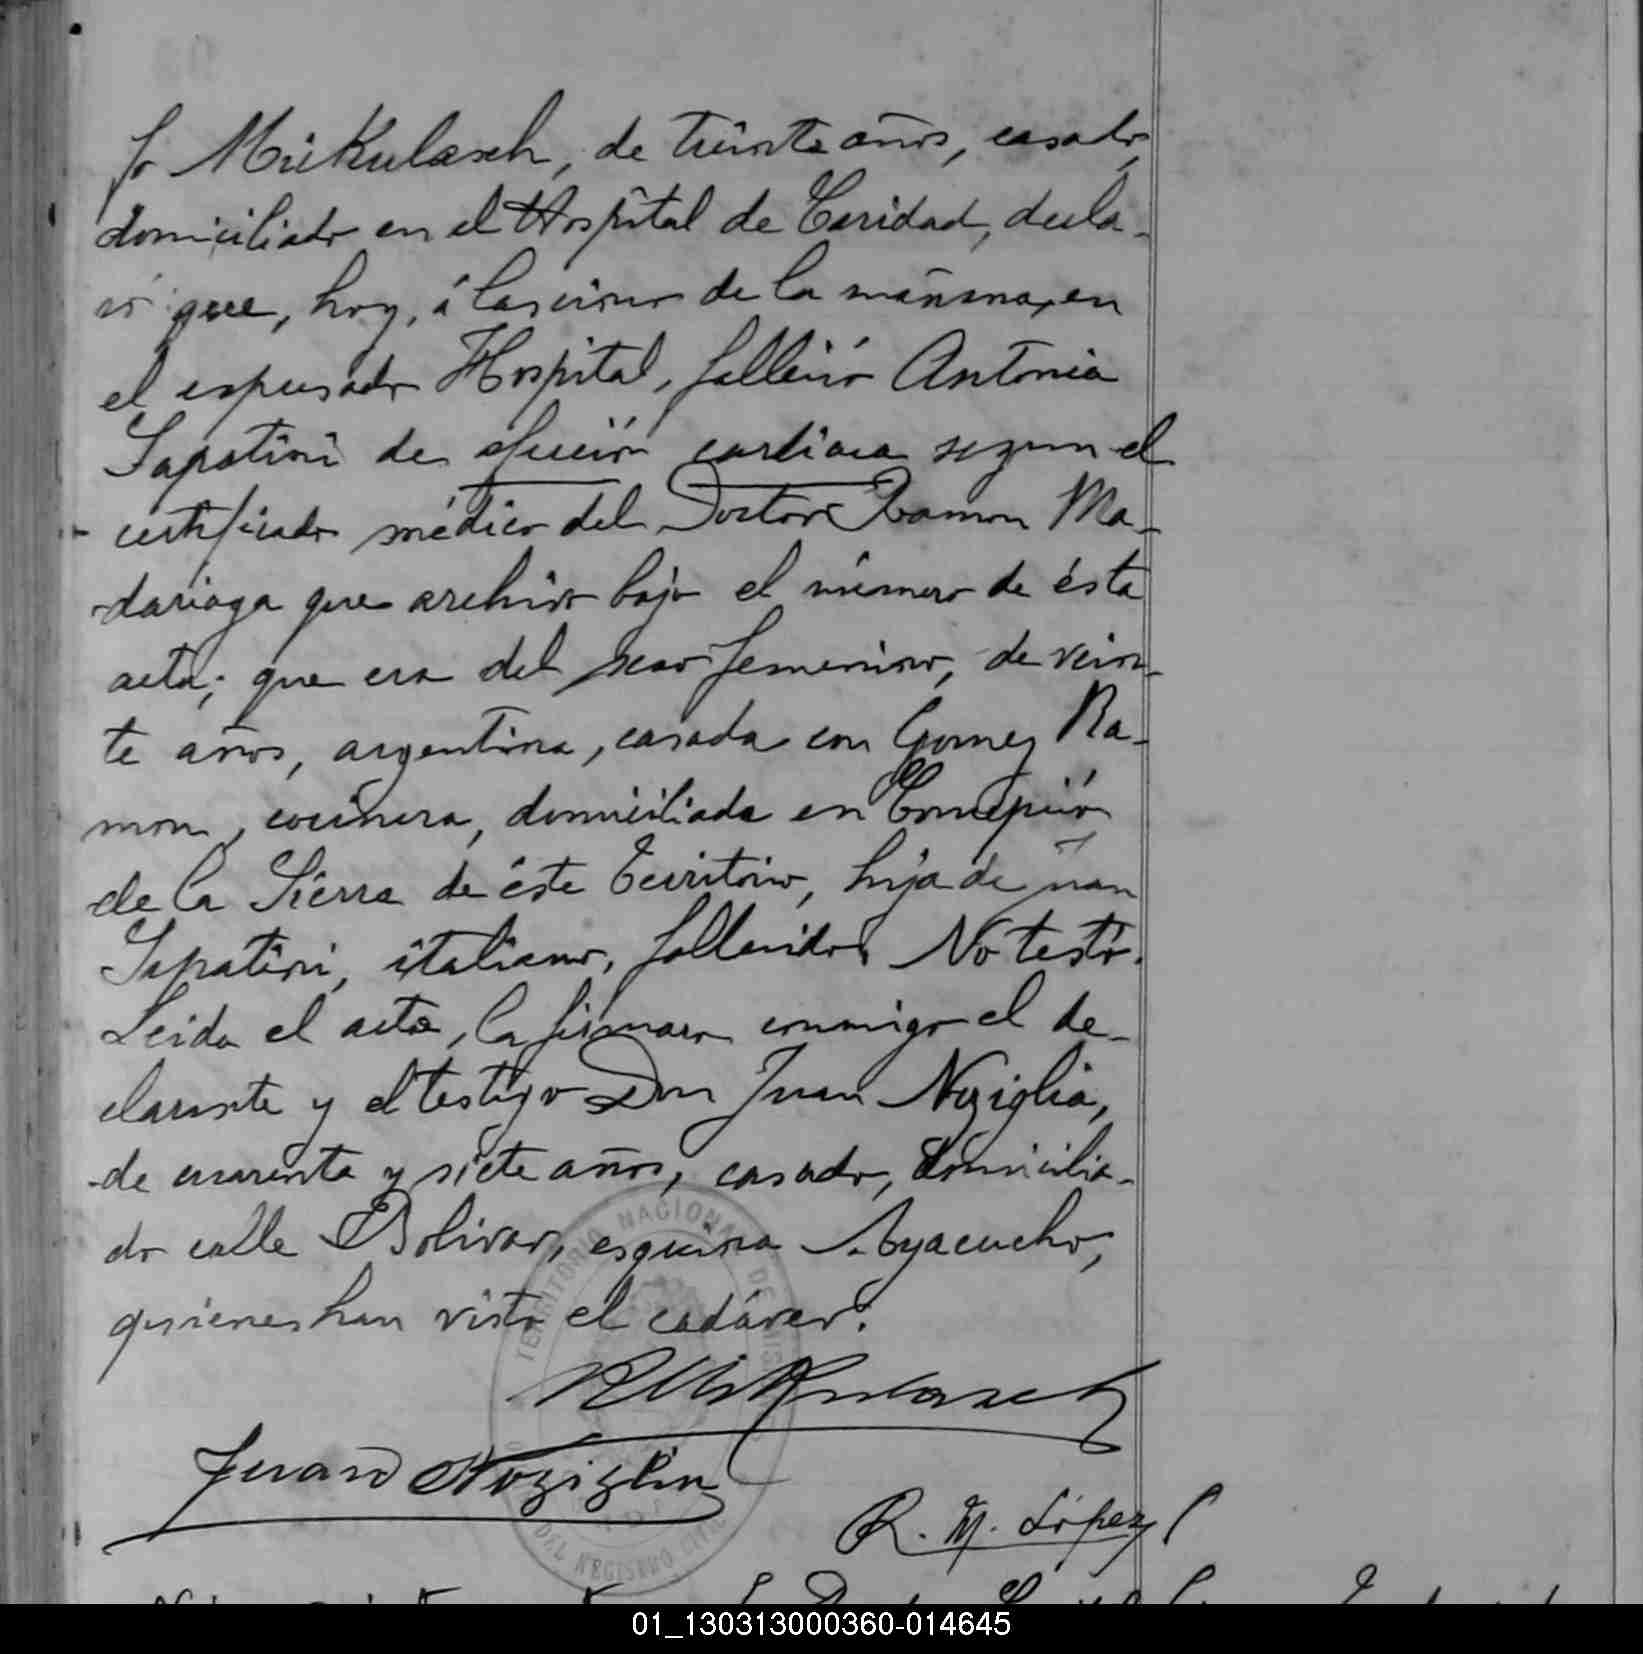 fo Mickulasch, de treinta años, casado,
domiciliado en el Hospital de Caridad, decla-
ró que, hoy, á las cinco de la mañana, en
el espresado Hospital, falleció Antonia
Sapatini de afección cardiaca segun el
certificado médico del Doctor Ramon Ma-
dariaga que archivo bajo el número de ésta
acta; que era del sexo femenino, de vein-
te años, argentina, casada con Gomez Ra-
mon, cocinera, domiciliada en Concepción
de la Sierra de éste Territorio, hija de Juan
Sapatini, italiano, fallecido. No testó.
Leida el acta, la firmaron conmigo el de-
clarante y el testigo Don Juan Noziglia,
de cuarenta y siete años, casado, domicilia-
do calle Bolivar, esquina Ayacucho,
quienes han visto el cadáver.
Mikulasch
Juan Noziglia
R. M. López
TERRITORIO NACIONAL DE MISIONES
DEL REGISTRO CIVIL
01_130313000360-014645